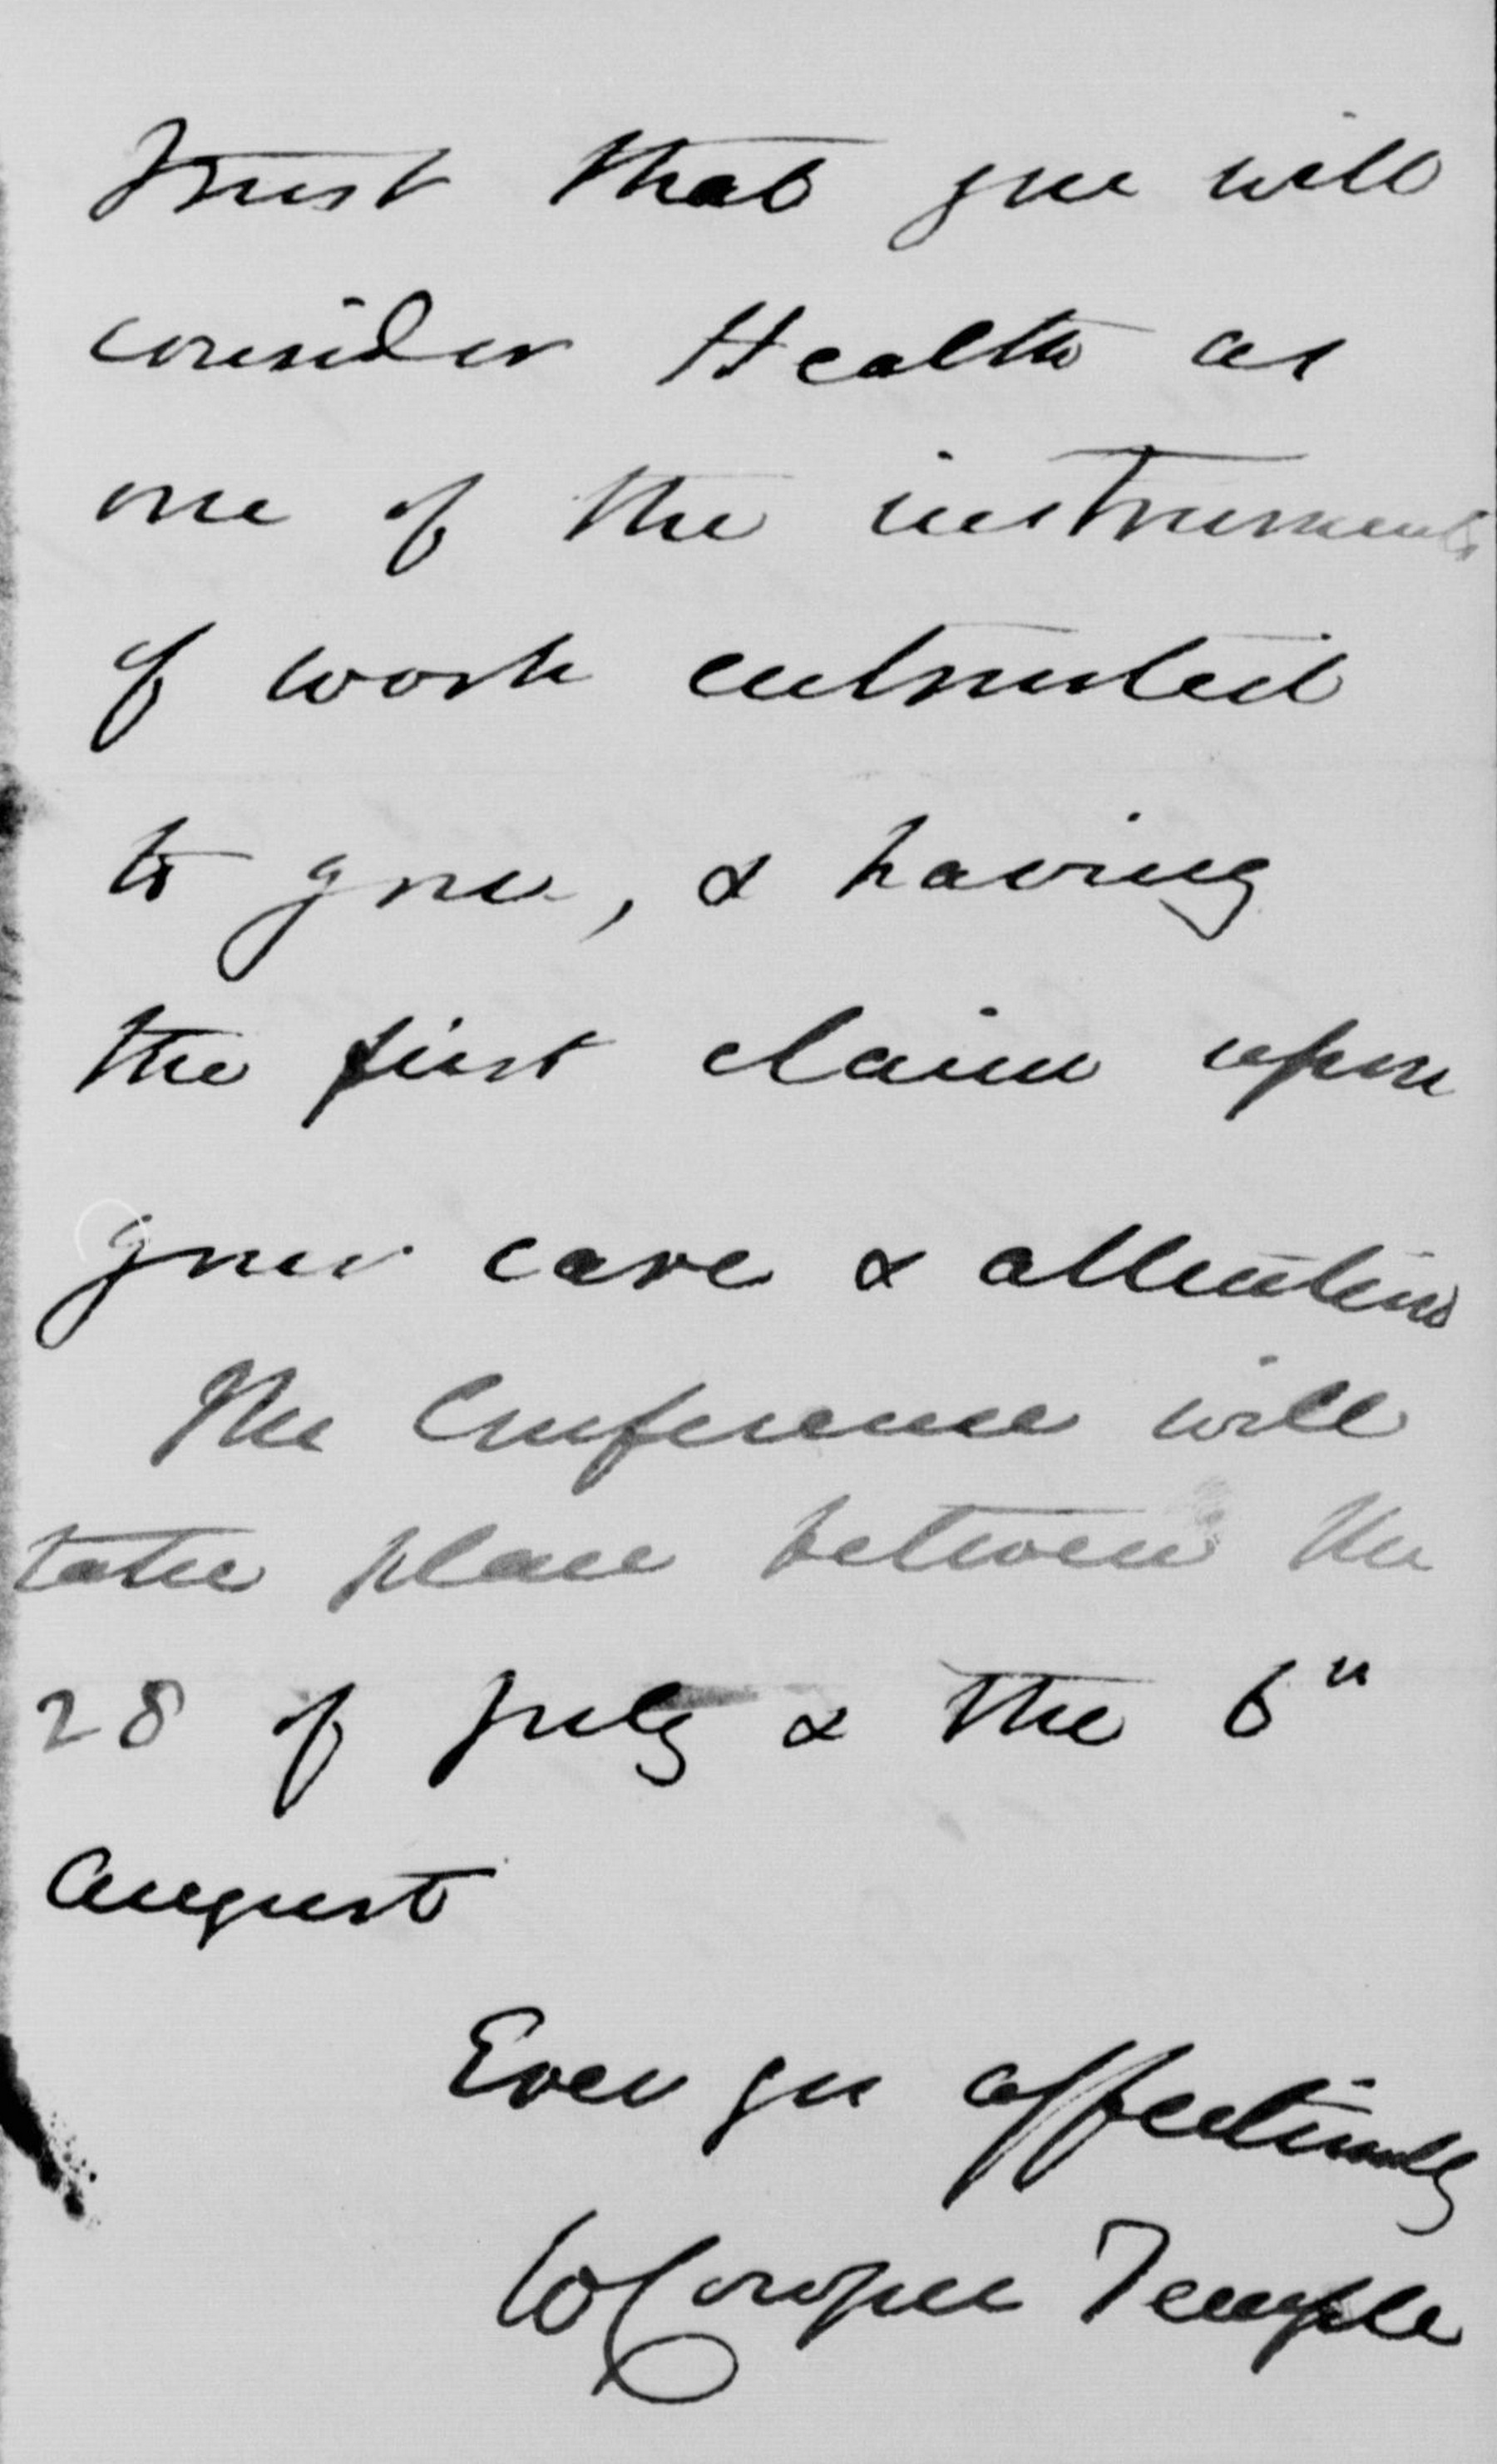 trust that you will
consider Health as
one of the instruments
of work entrusted
to you, & having
the first claim upon
your care & attention
The Conference will
take place between the
28 of July & the 6"
August
Ever yrs affectionately
W Cowper Temple